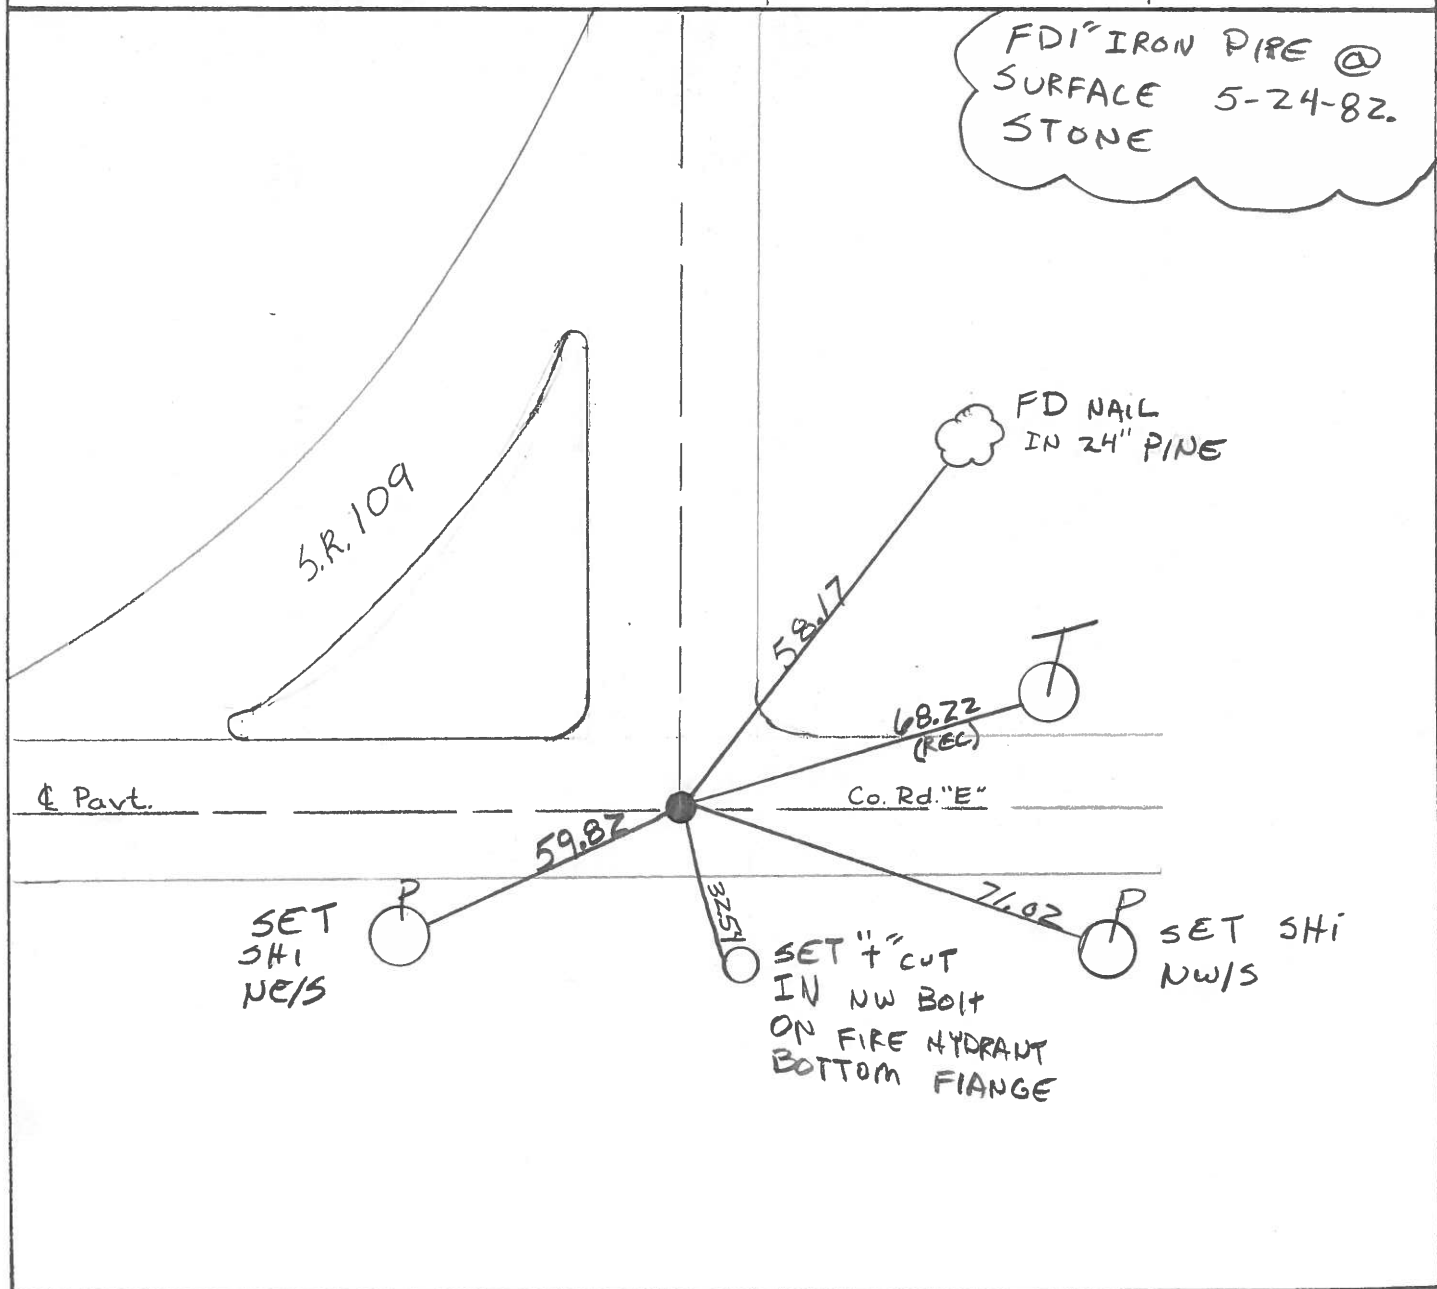 FD 1" IRON PIPE @
SURFACE 5-24-82.
STONE
FD NAIL
IN 24" PINE
S.R. 109
58.17
68.22
(REC)
℄ Pavt.
Co. Rd. "E"
59.82
32.51
SET
SHI
NE/S
SET "+" CUT
IN NW BOLT
ON FIRE HYDRANT
BOTTOM FLANGE
P
P
SET SHI
NW/S